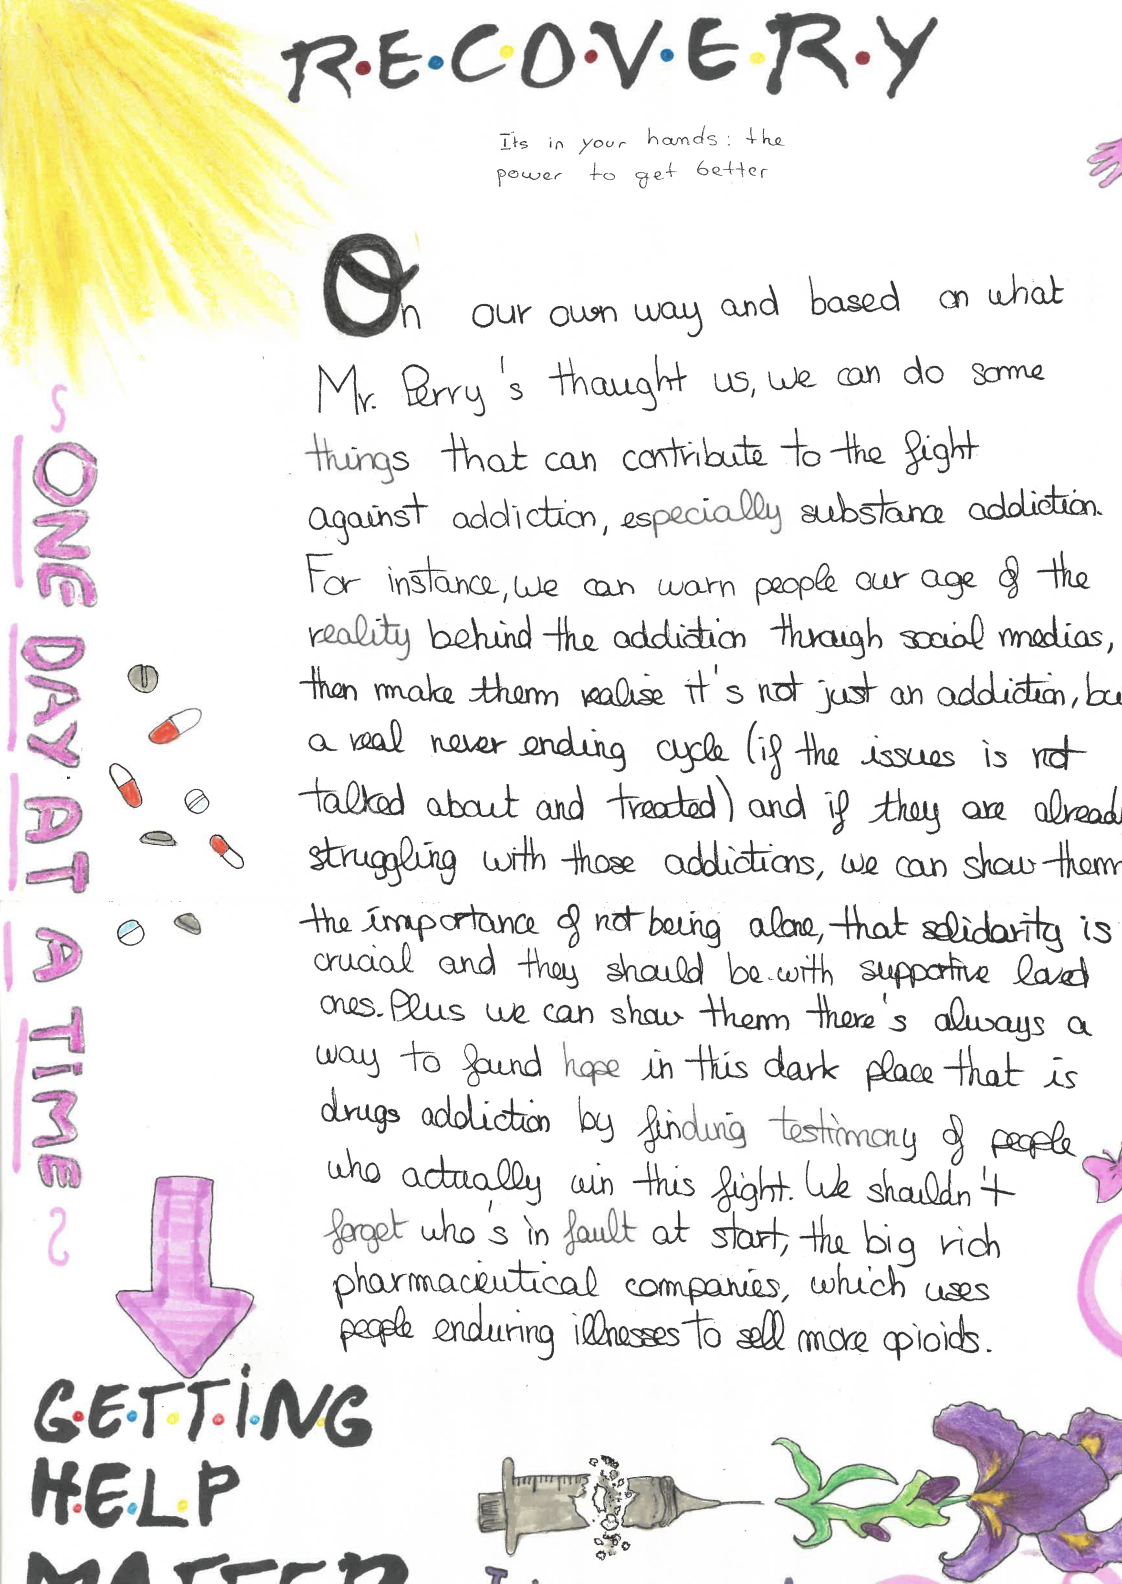 R.E.C.O.V.E.R.Y
Its in your hands : the
power to get better
On our own way and based on what
Mr. Perry's thaught us, we can do some
things that can contribute to the fight
against addiction, especially substance addiction.
For instance, we can warn people our age of the
reality behind the addiction through social medias,
then make them realise it's not just an addiction, bu
a real never ending cycle (if the issues is not
talked about and treated) and if they are alread
struggling with those addictions, we can show them
the importance of not being alone, that solidarity is
crucial and they should be with supportive loved
ones. Plus we can show them there's always a
way to found hope in this dark place that is
drugs addiction by finding testimony of people
who actually win this fight. We shouldn't
forget who's in fault at start, the big rich
pharmaceutical companies, which uses
people enduring illnesses to sell more opioids.
ONE DAY AT A TIME
G.E.T.T.I.N.G
H.E.L.P
MATTER